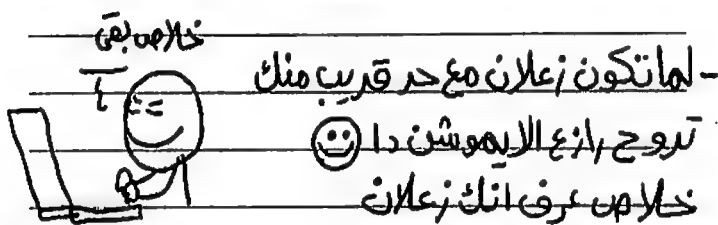 خلاص بقى
- لما تكون زعلان مع حد قريب منك
تروح رازع الايموشن دا ☺
خلاص عرف انك زعلان